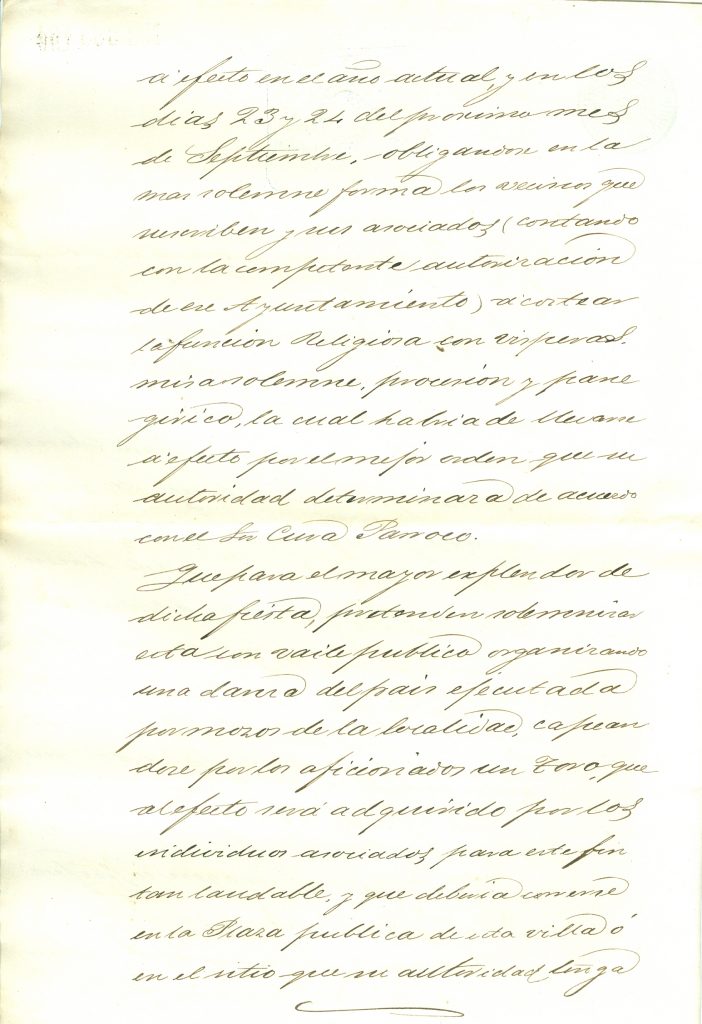 á efecto en el año actual, y en los
dias 23 y 24 del proximo mes
de Septiembre, obligandose en la
mas solemne forma los vecinos que
suscriben y sus asociados (contando
con la competente autorización
de ese Ayuntamiento) á costear
la función Religiosa con visperas.
misa solemne, procesión y pane
girico, la cual habria de llevarse
á efecto por el mejor orden que su
autoridad determinara de acuerdo
con el Sr Cura Parroco.
Que para el mayor explendor de
dicha fiesta, pretenden solemnizar
esta con vaile publico organizando
una danza del pais ejecutada
por mozos de la localidad, capean
dose por los aficionados un Toro, que
al efecto será adquirido por los
individuos asociados para este fin
tan laudable, y que deberia correrse
en la Plaza publica de esta villa ó
en el sitio que su autoridad tenga